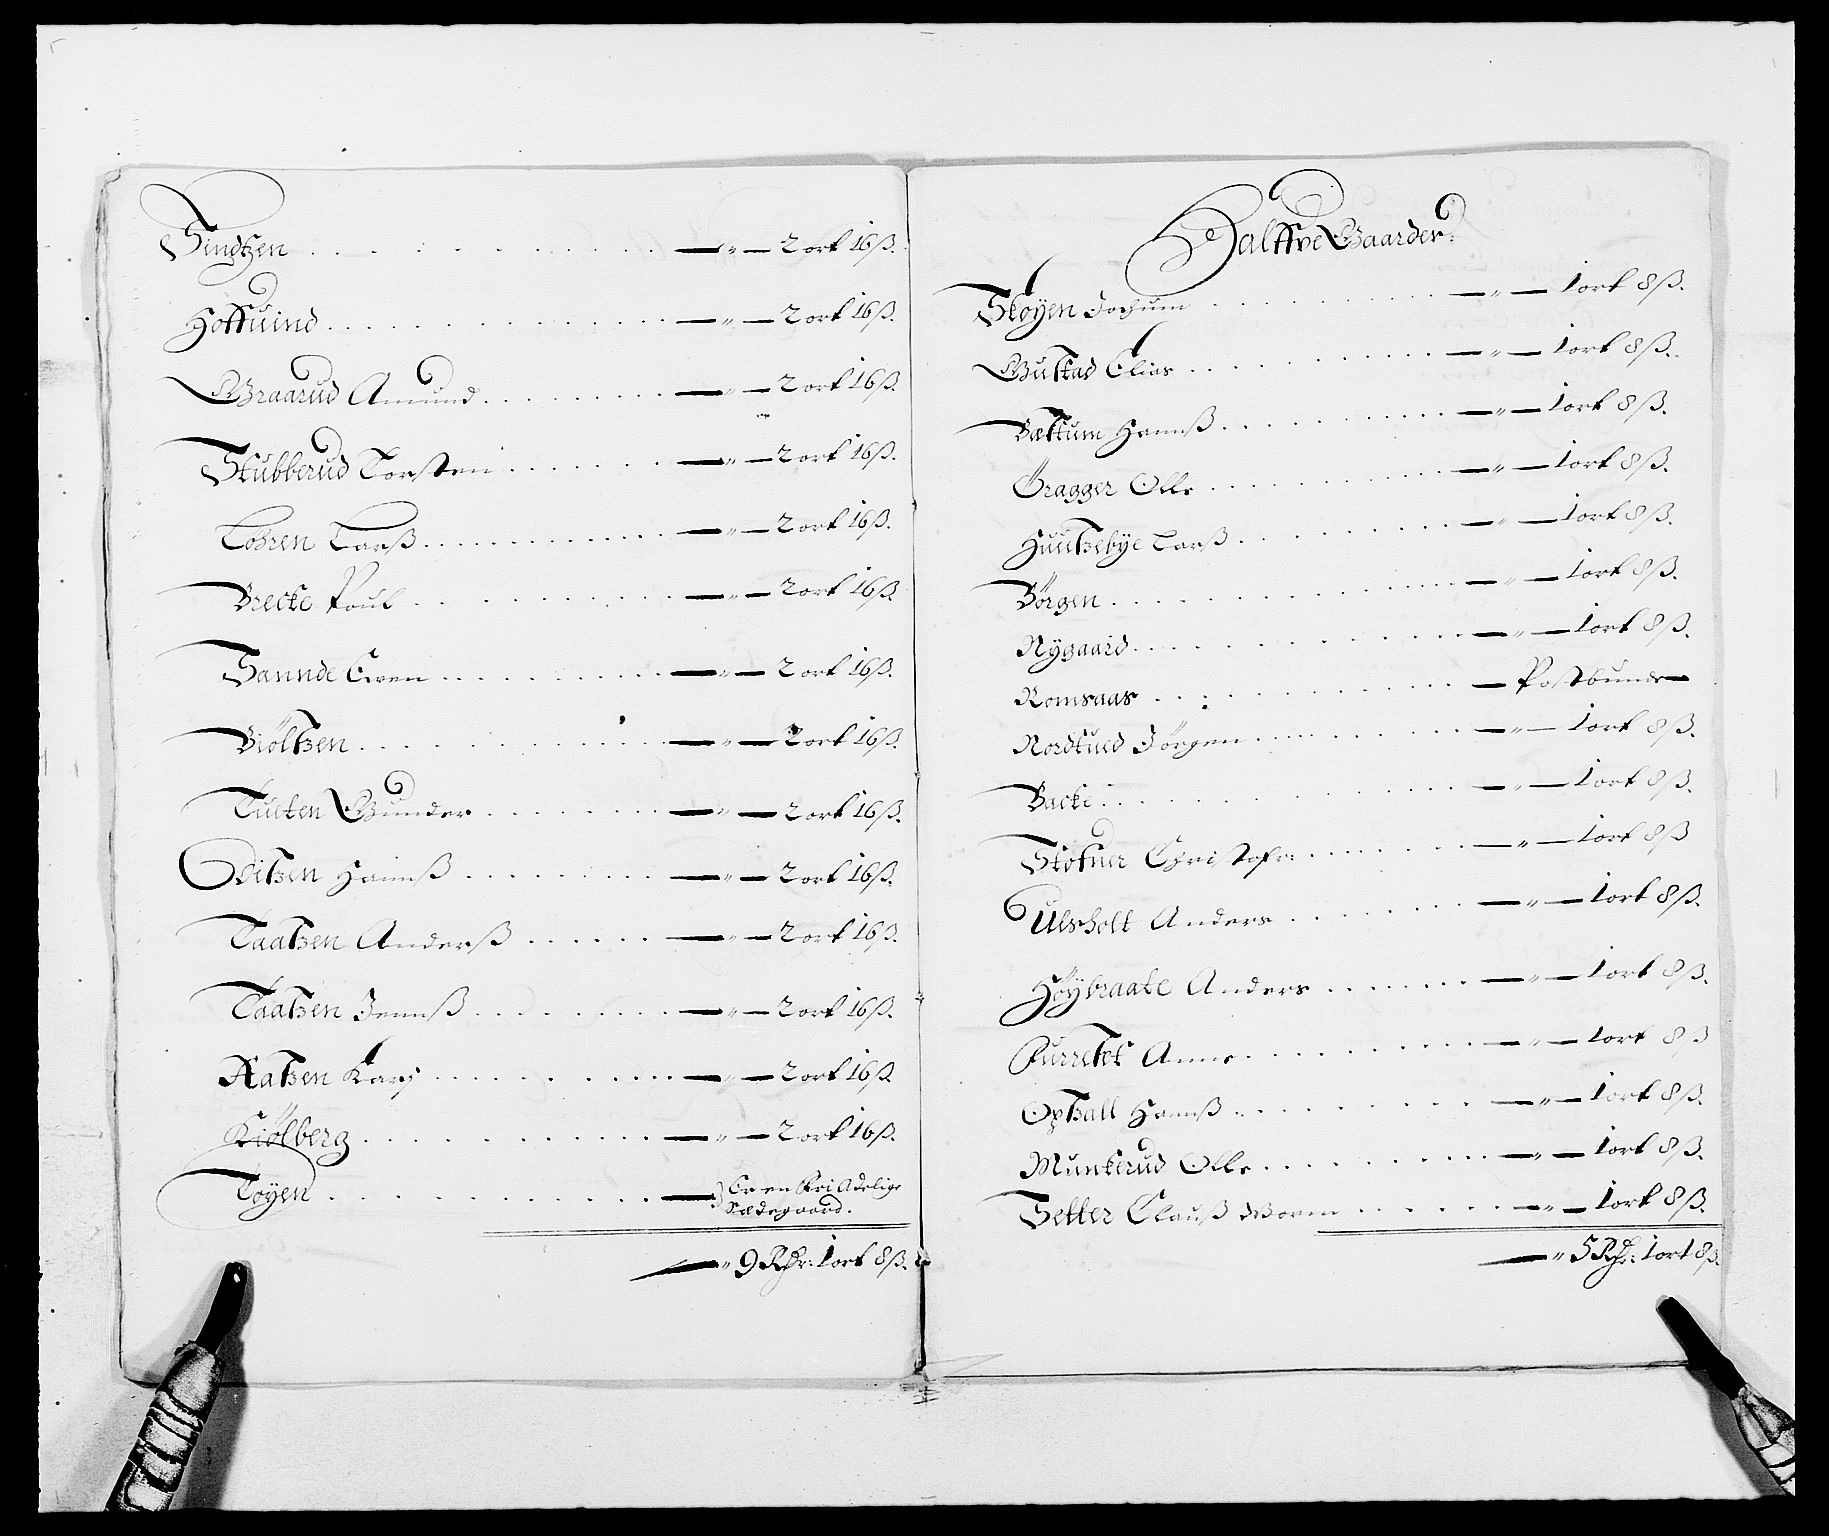 Sindtzen . . . . . . . . . . — " — 2 ort 16 ß.
Hoffuind . . . . . . . . . . — " — 2 ort 16 ß.
Braarud Amund . . . . . . . . — " — 2 ort 16 ß.
Stubberud Torsten . . . . . . — " — 2 ort 16 ß.
Lohren Larß . . . . . . . . . — " — 2 ort 16 ß.
Brecke Poul . . . . . . . . . — " — 2 ort 16 ß.
Sannde Even . . . . . . . . . — " — 2 ort 16 ß.
Biöltzen . . . . . . . . . . — " — 2 ort 16 ß.
Tueten Gunder . . . . . . . . — " — 2 ort 16 ß.
Oditzen Hannß . . . . . . . . — " — 2 ort 16 ß.
Taatzen Anderß . . . . . . . — " — 2 ort 16 ß.
Taatzen Jennß . . . . . . . . — " — 2 ort 16 ß.
Aatzen Karj . . . . . . . . . — " — 2 ort 16 ß.
Kiölberg . . . . . . . . . . — " — 2 ort 16 ß.
Töyen . . . . . . . . . . — Er en fri Adelige
Sædegaard.
— " 9 Rdr: 1 ort 8 ß.
Halffve Gaarder.
Skøyen Jochum . . . . . . . . — " — 1 ort 8 ß.
Gustad Elias . . . . . . . . — " — 1 ort 8 ß.
Bækkum Hannß . . . . . . . . — " — 1 ort 8 ß.
Öragger Olle . . . . . . . . — " — 1 ort 8 ß.
Huutzebye Larß . . . . . . . — " — 1 ort 8 ß.
Börgen . . . . . . . . . . . — " — 1 ort 8 ß.
Nygaard . . . . . . . . . . . — " — 1 ort 8 ß.
Romsaas . . . . . . . . . . . — Postbunde
Nordtued Jörgen . . . . . . . — " — 1 ort 8 ß.
Backe . . . . . . . . . . . . — " — 1 ort 8 ß.
Stofner Christofer . . . . . — " — 1 ort 8 ß
Ulsholt Anders . . . . . . . — " — 1 ort 8 ß.
Höybraate Anders . . . . . . — " — 1 ort 8 ß.
Furretet Anne . . . . . . . . — " — 1 ort 8 ß
Opsall Hannß . . . . . . . . — " — 1 ort 8 ß.
Munkerud Olle . . . . . . . . — " — 1 ort 8 ß.
Setter Clauß . . . . . . — " — 1 ort 8 ß.
— " 5 Rdr: 1 ort 8 ß.